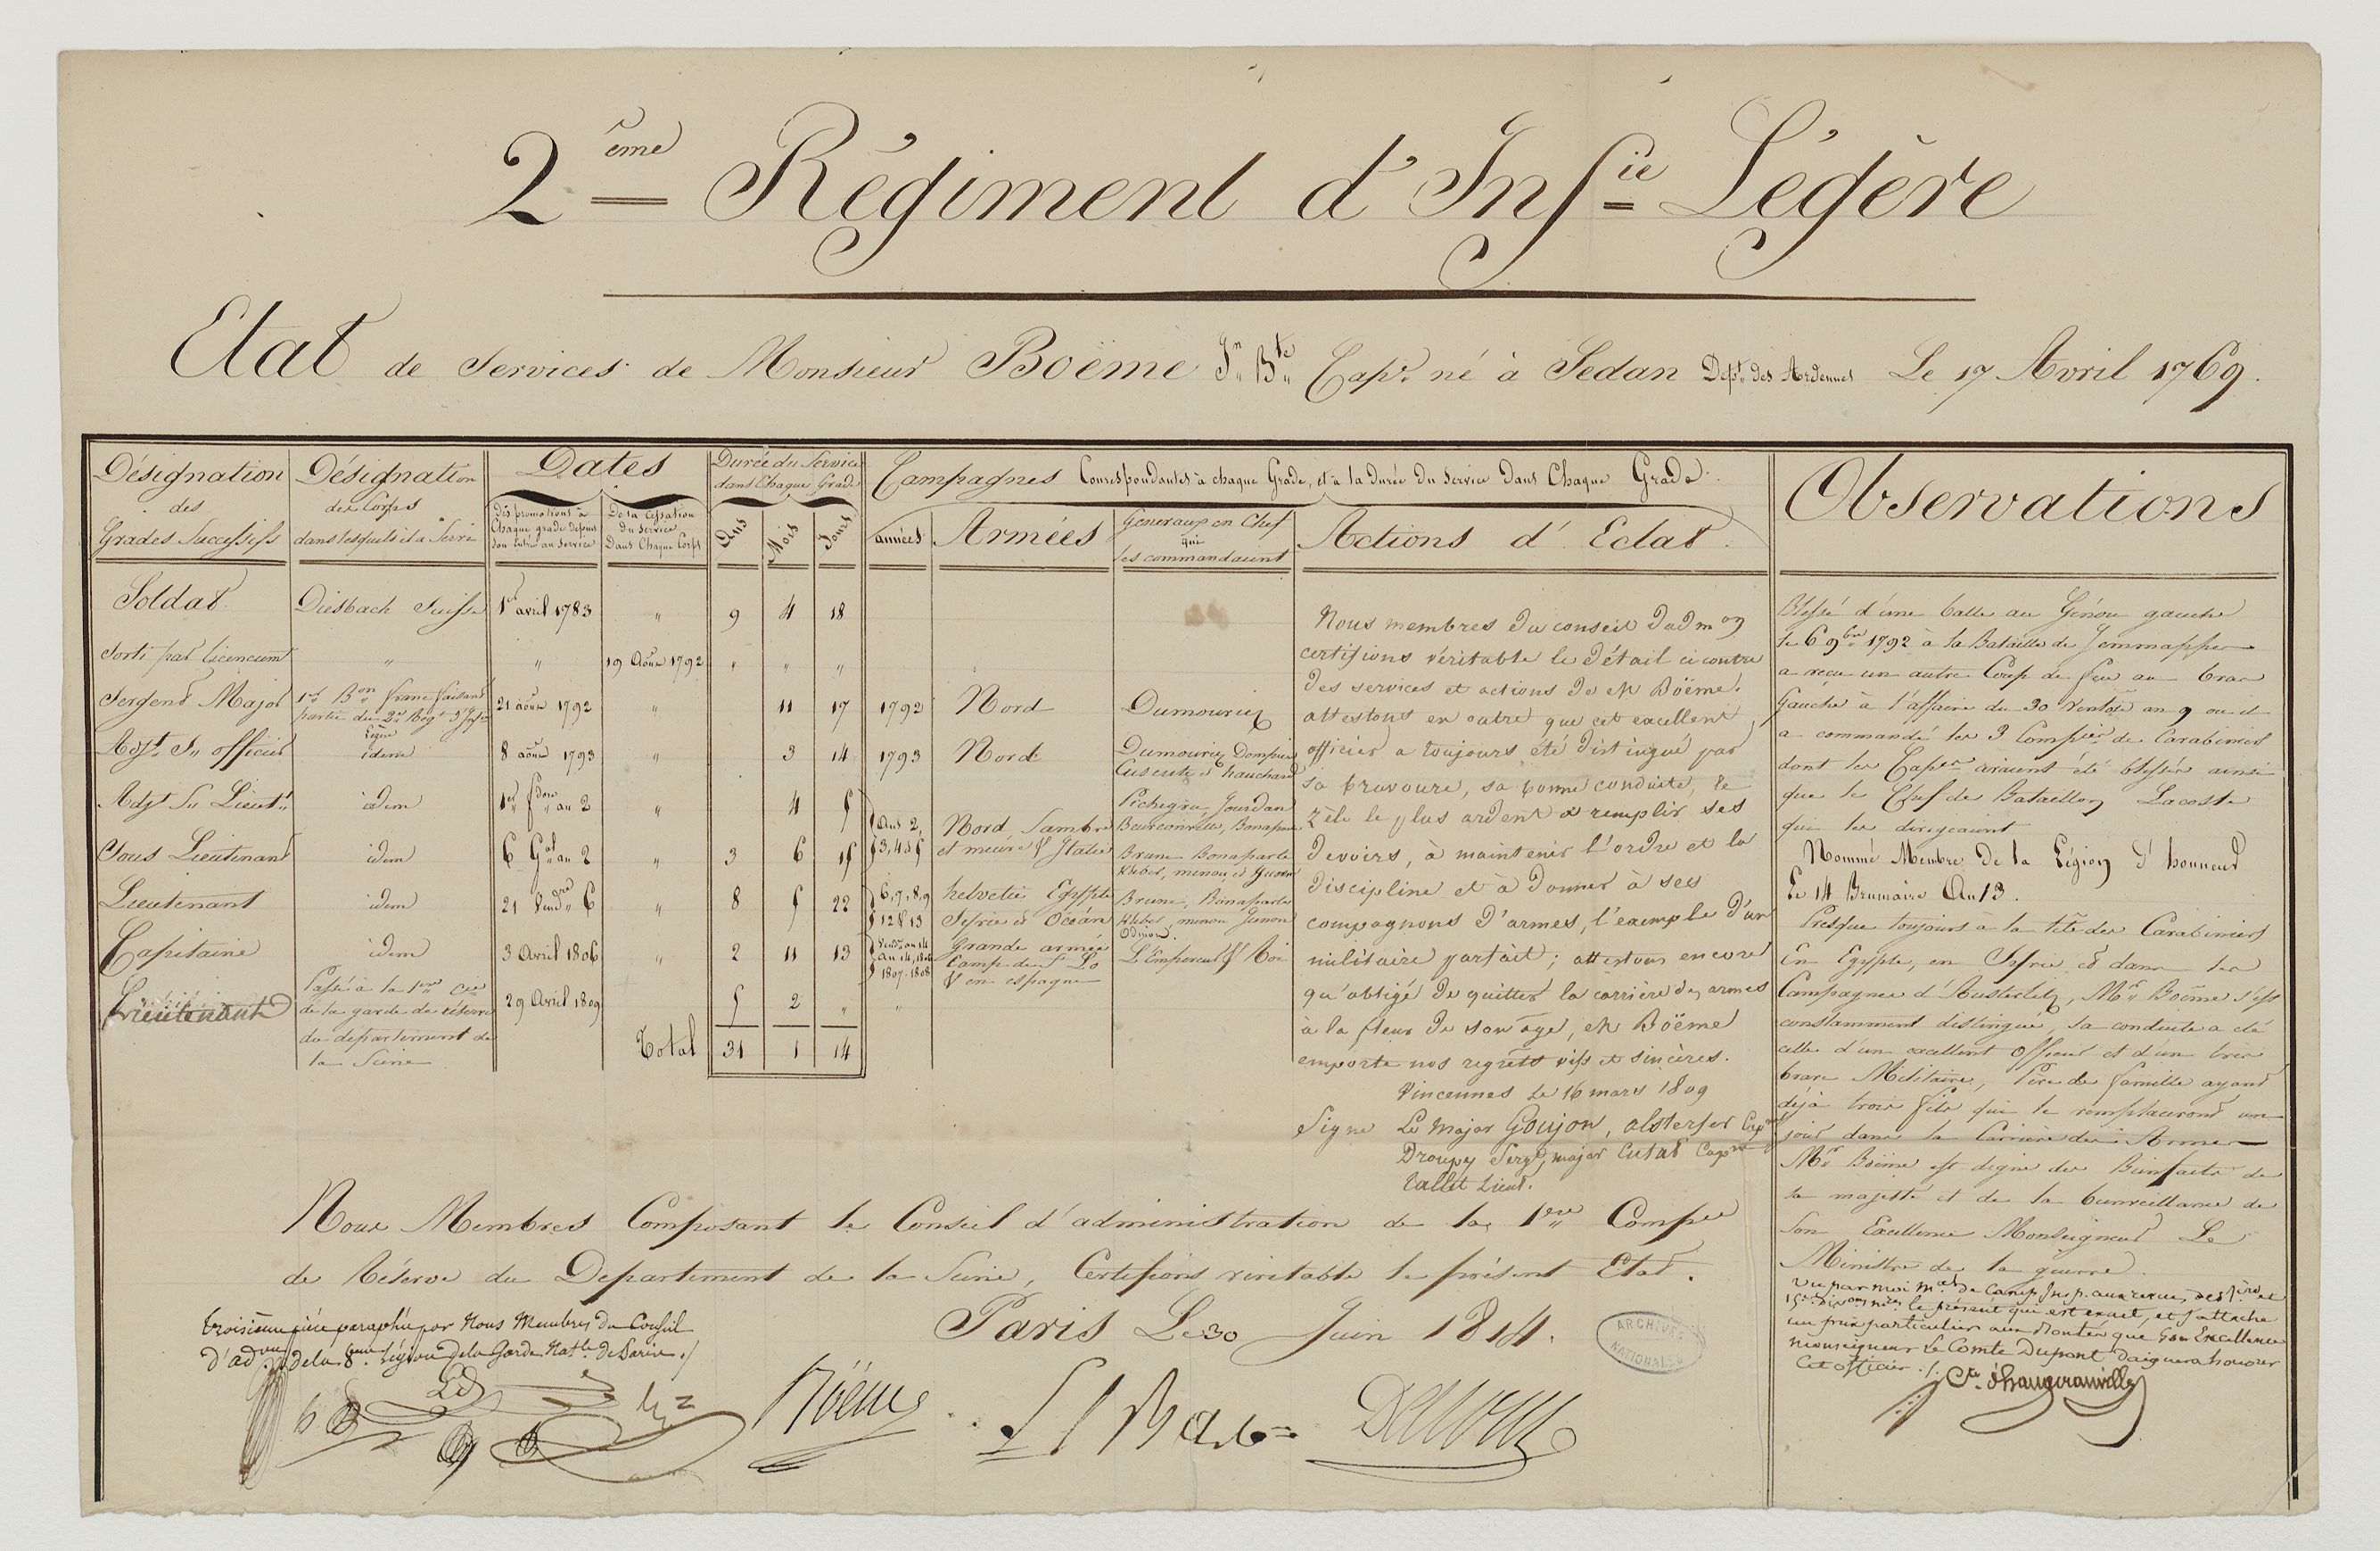 2ème Régiment d'Infie Légère
Etat de Services de Monsieur Boëme Jn Bte Capne né à Sedan Dépt des Ardennes Le 17 Avril 1769.
Désignation des Grades Successifs
Désignation des Corps dans lesquels il a Servi
Dates
des promotions à Chaque grade depuis son entrée au service
De la Cessation du Service Dans Chaque Corps
Durée du Service dans Chaque Grade
Ans
Mois
Jours
Campagnes Correspondantes à chaque Grade, et à la durée du service dans Chaque Grade.
années
Armées
Généraux en Chef qui les commandaient
Actions d'Eclat.
Observations
Soldat Diesbach Suisse 1er avril 1783 " 9 4 18
Sorti par licenciemt " " 19 Août 1792 " " "
Sergent Major 1er Bon franc faisant partie du 2e Régt d'Infie Légère 21 août 1792 " 11 17 1792 Nord Dumouriez
Adjt Ss officier idem 8 août 1793 " 3 14 1793 Nord Dumouriez Dampierre Custine et houchard
Adjt Ss Lieutt idem 1er an 2 " 4 5
Sous Lieutenant idem 6 Gal an 2 " 3 6 15
Ans 2, 3, 4 & 5
Nord, Sambre et meuse & Italie
Pichegru, Jourdan Beurnonville, Bonaparte
Lieutenant idem 21 Vendre 6 " 8 5 22
6, 7, 8, 9 12 & 13
helvetie Egypte Syrie et Océan
Brune Bonaparte Kleber, menou et Junot
Brune, Bonaparte Kleber, menou Junot
Capitaine idem 3 Avril 1806 " 2 11 13
1807. 1808
Grande armée Camp de St Lo & en espagne
L'Empereur & Roi
Lieutenant
Passé à la 1ere Cie de la garde de réserve du département de la Seine
29 Avril 1809 5 2 " "
Total 31 1 14
Nous membres du conseil d'admon
certifions véritable le Détail ci contre
des services et actions de Mr Boëme.
attestons en outre que cet excellent
officier a toujours été distingué par
sa bravoure, sa bonne conduite, le
zèle le plus ardent à remplir ses
devoirs, à maintenir l'ordre et la
discipline et à donner à ses
compagnons d'armes, l'exemple d'un
militaire parfait; attestons encore
qu'obligé de quitter la carrière des armes
à la fleur de son âge, Mr Boëme
emporte nos regrets vifs et sincères.
Vincennes le 16 mars 1809
Signé Le Major Goujon, alsterfer Capne
Droupy Sergt major Cutat Capne
Tallet Lieut.
Blessé d'une balle au Genou gauche
le 6 9bre 1792 à la Bataille de Jemmappes
a reçu un autre Coup de feu au bras
Gauche à l'affaire du 30 Ventose an 9 ou il
a commandé les 3 Compies de Carabiniers
dont les Capnes avaient été blessés ainsi
que le Chef de Bataillon Lacoste
qui les dirigeaient
Nommé Membre De la Légion d'honneur
Le 14 Brumaire An 13.
Presque toujours à la tête des Carabiniers
En Egypte, en Syrie et dans les
Campagnes d'Austerlitz, Mr Boëme s'est
constamment distingué, sa conduite a été
celle d'un excellent Officier et d'un très
brave Militaire, Père de famille ayant
déjà trois fils qui le remplaceront un
jour dans la Carrière des Armes
Mr Boëme est digne des Bienfaits de
sa majesté et de la bienveillance de
Son Excellence Monseigneur Le
Ministre de la guerre.
Vu par moi mal de Camp Insp. aux revues des 1ere et
15e Divons mres le présent qui est exact, et j'attache
un prix particulier aux Bontés que Son Excellence
monseigneur Le Comte Dupont daignera honorer
Cet officier ./.
Nous Membres Composant le Conseil d'administration de la 1ere Compie
de Réserve du Departement de la Seine, Certifions véritable le présent Etat.
Paris Le 30 Juin 1814.
troisième pièce paraphée par Nous Membres du Conseil
d'adon de la 8eme Légion de la Garde Natle de Paris ./
Boëme
ARCHIVES NATIONALES